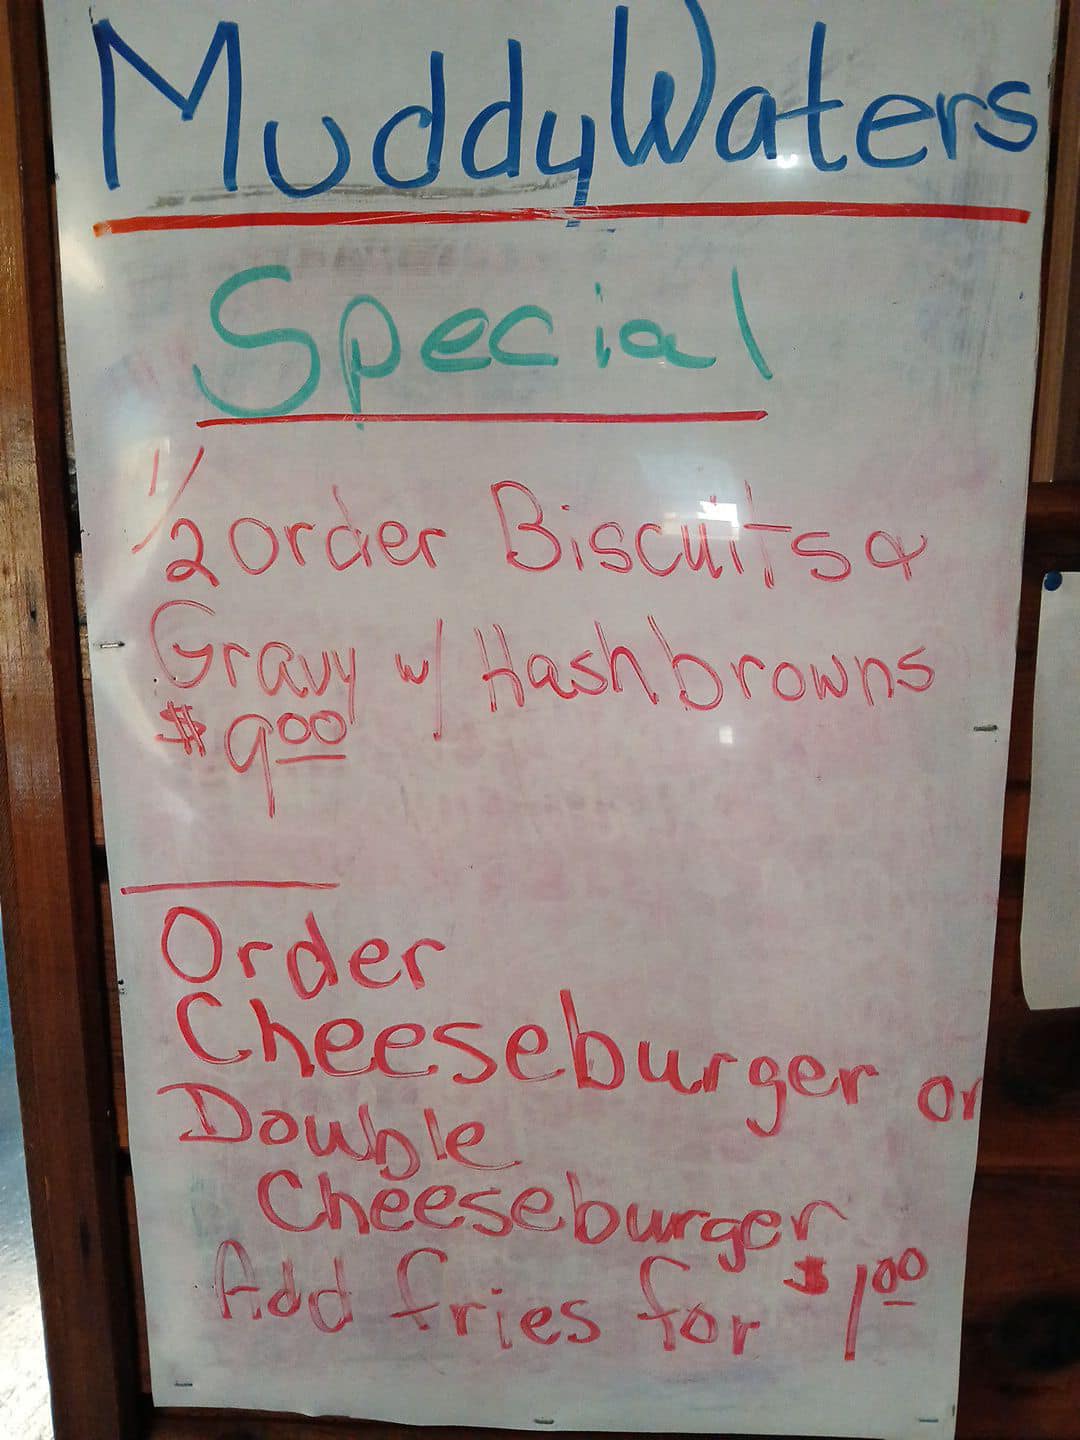 Muddy Waters
Special
1/2 order Biscuits &
Gravy w/ Hashbrowns
$9.00
Order
Cheeseburger or
Double
Cheeseburger
Add fries for $1.00